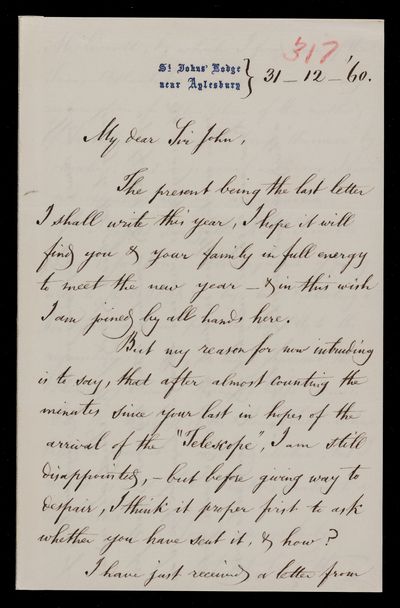 317
St. Johns' Lodge
near Aylesbury } 31 - 12 - '60.
My dear Sir John,
The present being the last letter
I shall write this year, I hope it will
find you & your family in full energy
to meet the new year - & in this wish
I am joined by all hands here.
But my reason for now intruding
is to say, that after almost counting the
minutes since your last in hopes of the
arrival of the "Telescope", I am still
disappointed, - but before giving way to
despair, I think it proper first to ask
whether you have sent it, & how?
I have just received a letter from